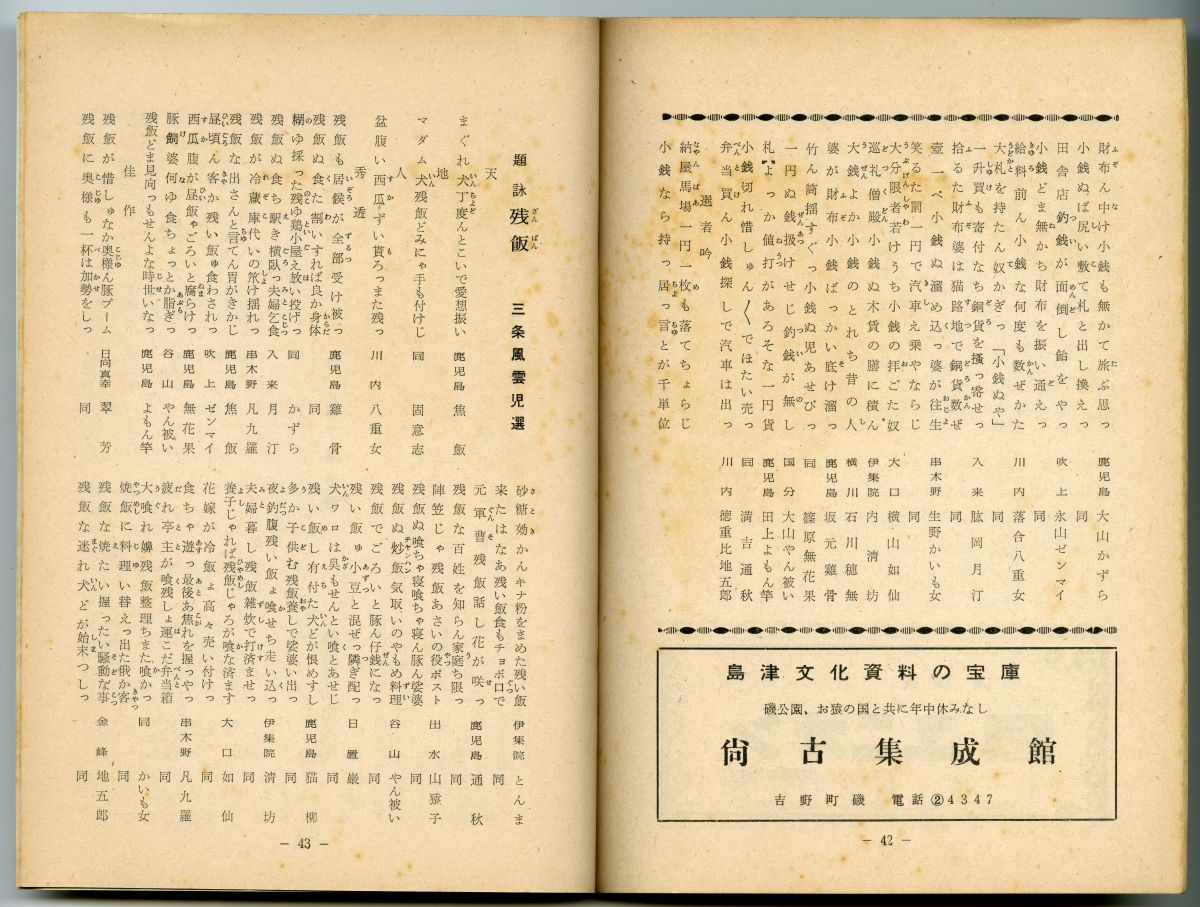 財布ん中け小銭も無かて旅ぶ思っ 鹿児島 大山かずら
小銭ぬば尻い敷て札と出し換えっ 同
田舎店釣銭が面倒し飴をやっ 吹上 永山ゼンマイ
小銭どま無かち財布を振い通えっ 同
給料前ん小銭な何度も数ぜかた 川内 落合八重女
大札を持たん奴かぎっ「小銭ぬや」 同
一升買も寄付なち銅貨を掻っ寄せっ 入来 肱岡月汀
拾るた財布婆は猫路地で銅貨数ぜ 同
壺一ペ小銭ぬ溜め込っ婆が往生 串木野 生野かいも女
笑るた罰で汽車え乗やならじ 同
大分限者若けうち小銭の拝ごた奴 大口 横山如仙
巡礼僧殿小銭ぬ木賃の膳に積ん 伊集院 内清坊
大銭よか小銭のとれち昔の人 横川 石川穂無
婆が財布小銭ばっかい底け溜っ 鹿児島 坂元雞骨
竹ん筒揺すぐっ小銭ぬ児あせびっ 同 篠原無花果
一円ぬ銭扱けせじ釣銭が無し 国分 大山やん被い
札よっか値打があろそな一円貨 鹿児島 田上よもん竿
小銭切れ惜しゅん〳〵でほたい売っ 同 満吉通秋
弁当買ん小銭探しで汽車は出っ 川内 徳重比地五郎
選者吟
納屋馬場一円一枚も落てちょらじ
小銭なら持っ居っ言とが千単位
島津文化資料の宝庫
磯公園、お猿の国と共に年中休みなし
尙古集成館
吉野町磯 電話②4347
— 42 —
題詠 残飯 三条風雲児選
天
まぐれ犬丁度んとこいで愛想振い 鹿児島 焦飯
地
マダム犬残飯どみにゃ手も付けじ 同 固意志
人
盆腹い西瓜ずい貰ろっまた残っ 川内 八重女
秀逸
残飯も居候が全部受け被っ 鹿児島 雞骨
残飯ぬ食た割いすれば良か身体 同
糊ゆ採った残ゆ鶏小屋え放い投げっ 同 かずら
残飯ぬ食ち駅き横臥っ夫婦乞食 入来 月汀
残飯が冷蔵庫代いの笊け揺れっ 串木野 凡九羅
残飯な出さんと言てん胃がきかじ 鹿児島 焦飯
昼頃ん客か残い飯ゅ食わされっ 吹上 ゼンマイ
西瓜腹が昼飯ゃごろいと腐らけっ 鹿児島 無花果
豚飼婆何ゆ食ちょっとか脂ぎっ 谷山 やん被い
残飯どま見向っもせんよな時世いなっ 鹿児島 よもん竿
佳作
残飯が惜しゅなか奥様ん豚ブーム 日向真幸 翠芳
残飯に奥様も一杯は加勢をしっ 同
砂糖効かんキナ粉をまめた残い飯 伊集院 とんま
来たはなあ残い飯食もチョボロで 同
元軍曹残飯話し花が咲っ 鹿児島 通秋
残飯な百姓を知らん家庭ち限っ 同
陣笠じゃ残飯あさいの役ポスト 出水 山猿子
残飯ぬ喰ちゃ寝喰ちゃ寝ん豚ん娑婆 同
残飯ぬ炒飯気取いのやもめ料理 谷山 やん被い
残飯でごろいと豚ん仔銭になっ 同
残い飯ゅ小豆と混ぜっ隣ぎ配っ 日置 厳
犬ワロは臭もせんとい喰とあせじ 同
残い飯し有付た犬どが恨めすし 鹿児島 猫柳
多か子供む残飯養しで娑婆い出っ 同
夜釣腹残い飯ょ喰せち走い込っ 伊集院 清坊
夫婦暮し残飯雑炊で打済ませっ 同
養子じゃれば残飯じゃろが喰な済ます 大口 如仙
花嫁が冷飯ょ高々売い付けっ 同
食ちゃ遊っ最後あ焦れを握っやっ 串木野 凡九羅
疲れ亭主が喰残しょ運こだ弁当箱 同
大喰れ嬶残飯整理ちまた喰かっ 同 かいも女
焼飯に料理い替えっ出た俄か客 同
残飯な焼たい握ったい騒動な事 金峰 地五郎
残飯な迷れ犬どが始末つしっ 同
— 43 —